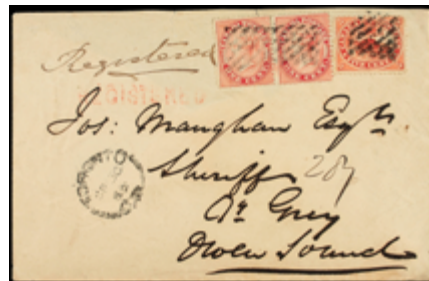 Registered
REGISTERED
Jos: Maughan Esqre
Sheriff
207
Co Grey
Owen Sound
TORONTO